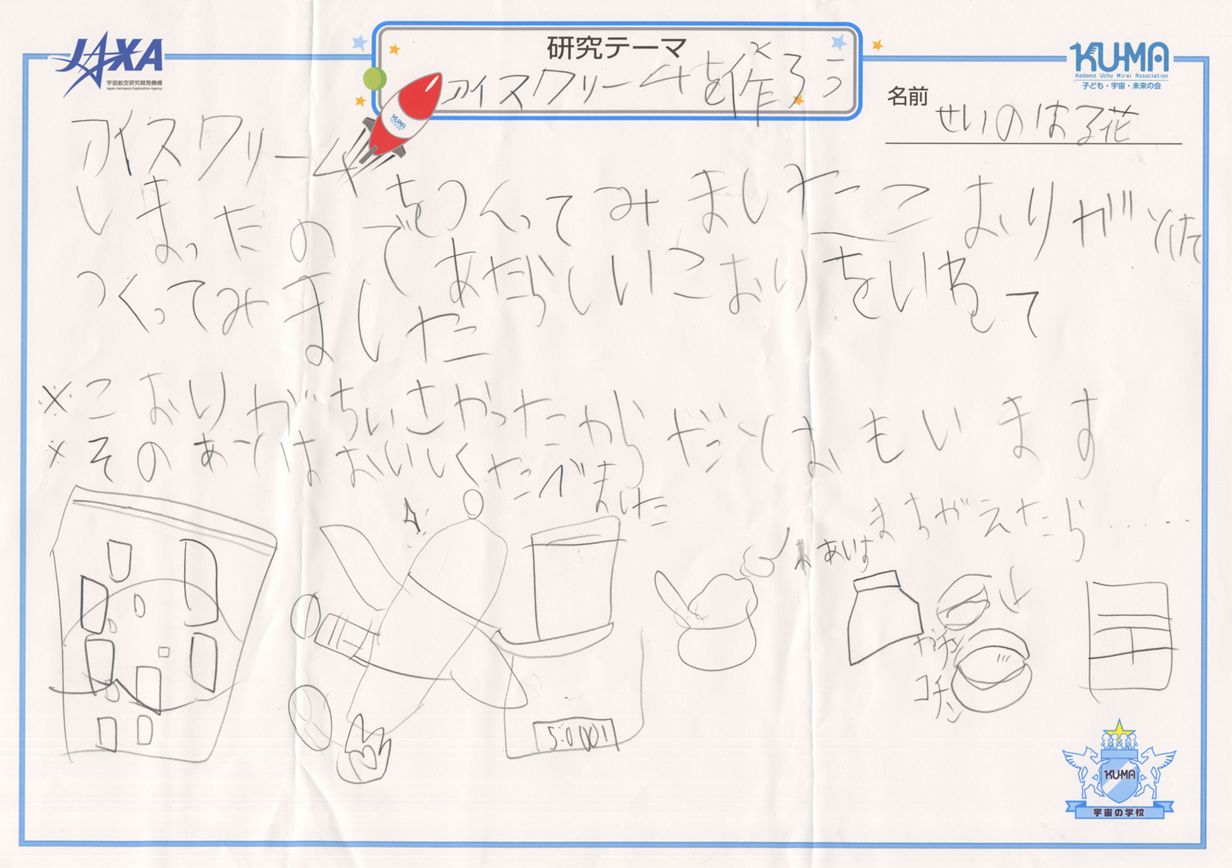 JAXA
宇宙航空研究開発機構
Japan Aerospace Exploration Agency
研究テーマ
アイスクリームを作ろう
KUMA
Kodomo Uchu Mirai Association
子ども・宇宙・未来の会
名前
せいのはる花
KUMA
アイスクリーム
をつくってみましたこおりがとけた
しまったので
あたらしいこおりをいれて
つくってみました
※こおりがちいさかったからだとおもいます
※そのあとはおいしくたべました
まちがえたら……
あいす
ガチ
コチン
5:00
KUMA
宇宙の学校